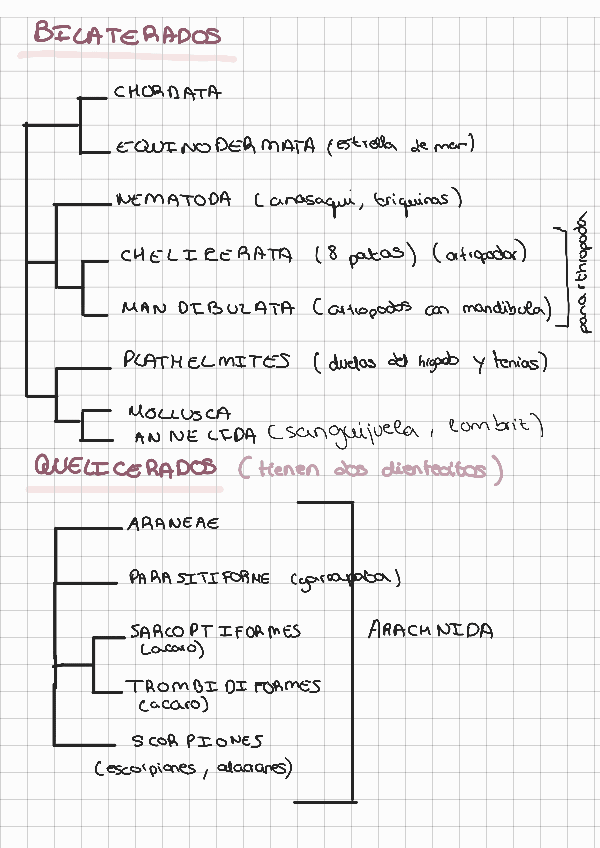 BILATERADOS
CHORDATA
EQUINODERMATA (estrella de mar)
NEMATODA (anasaqui, triquinas)
CHELICERATA (8 patas) (artropodos)
MANDIBULATA (artropodos con mandibula)
panarthropoda
PLATHELMITES (duelas del higado y tenias)
MOLLUSCA
ANNELIDA (sanguijuela, lombriz)
QUELICERADOS (tienen dos dientecitos)
ARANEAE
PARASITIFORME (garrapata)
SARCOPTIFORMES
(acaro)
ARACHNIDA
TROMBIDIFORMES
(acaro)
SCORPIONES
(escorpiones, alacranes)